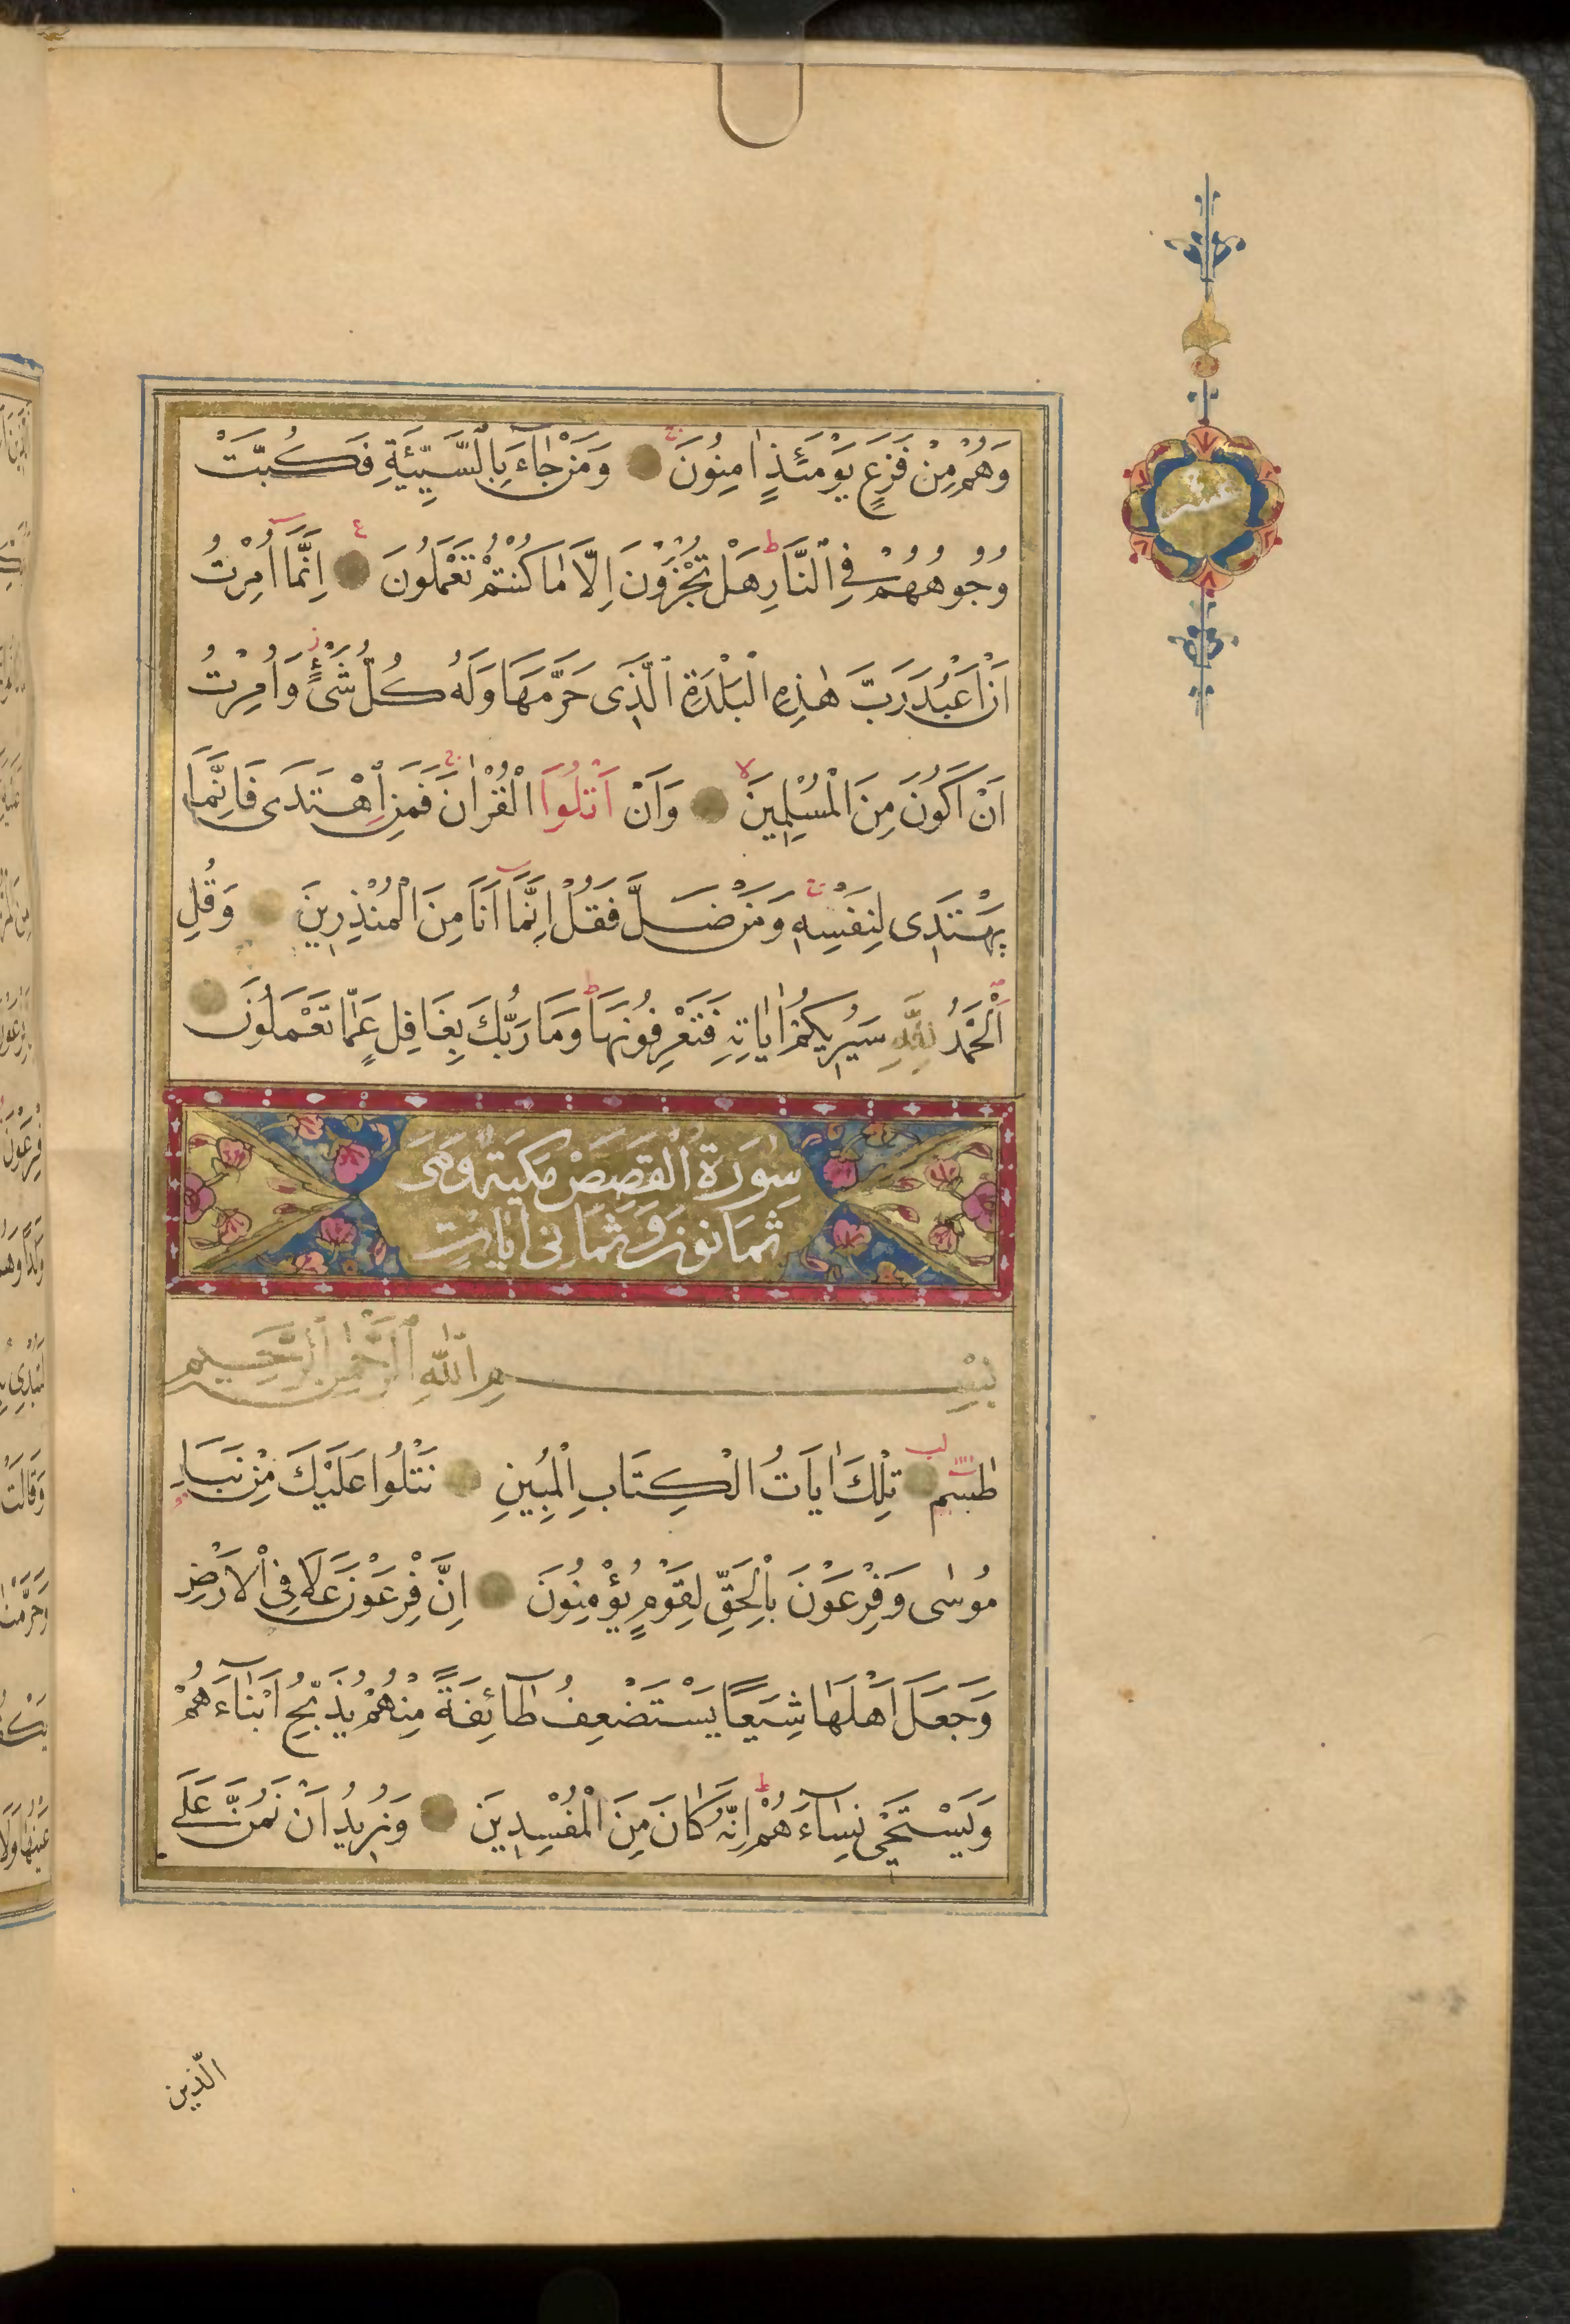 وَهُمْ مِنْ فَزَعٍ يَوْمَئِذٍ اٰمِنُونَ وَمَنْ جَاءَ بِالسَّيِّئَةِ فَكُبَّتْ
وُجُوهُهُمْ فِي النَّارِ هَلْ تُجْزَوْنَ اِلَّا مَا كُنْتُمْ تَعْمَلُونَ اِنَّمَا اُمِرْتُ
اَنْ اَعْبُدَ رَبَّ هٰذِهِ الْبَلْدَةِ الَّذِى حَرَّمَهَا وَلَهُ كُلُّ شَىْءٍ وَاُمِرْتُ
اَنْ اَكُونَ مِنَ الْمُسْلِمِينَ وَاَنْ اَتْلُوَا الْقُرْاٰنَ فَمَنِ اهْتَدَى فَاِنَّمَا
يَهْتَدِى لِنَفْسِهِ وَمَنْ ضَلَّ فَقُلْ اِنَّمَا اَنَا مِنَ الْمُنْذِرِينَ وَقُلِ
الْحَمْدُ لِلّٰهِ سَيُرِيكُمْ اٰيَاتِهِ فَتَعْرِفُونَهَا وَمَا رَبُّكَ بِغَافِلٍ عَمَّا تَعْمَلُونَ
سُورَةُ الْقَصَصْ مَكِيَة وَهَىَ
ثَمَانُونَ وَثَمَانِى اٰيَاتِ
بِسْمِ اللّٰهِ الرَّحْمٰنِ الرَّحِيمِ
طٰسٓمٓ تِلْكَ اٰيَاتُ الْكِتَابِ الْمُبِينِ نَتْلُوا عَلَيْكَ مِنْ نَبَاِ
مُوسٰى وَفِرْعَوْنَ بِالْحَقِّ لِقَوْمٍ يُؤْمِنُونَ اِنَّ فِرْعَوْنَ عَلَا فِى الْاَرْضِ
وَجَعَلَ اَهْلَهَا شِيَعًا يَسْتَضْعِفُ طَآئِفَةً مِنْهُمْ يُذَبِّحُ اَبْنَآءَهُمْ
وَيَسْتَحْيٖى نِسَآءَهُمْ اِنَّهُ كَانَ مِنَ الْمُفْسِدِينَ وَنُرِيدُ اَنْ نَمُنَّ عَلَى
الَّذين